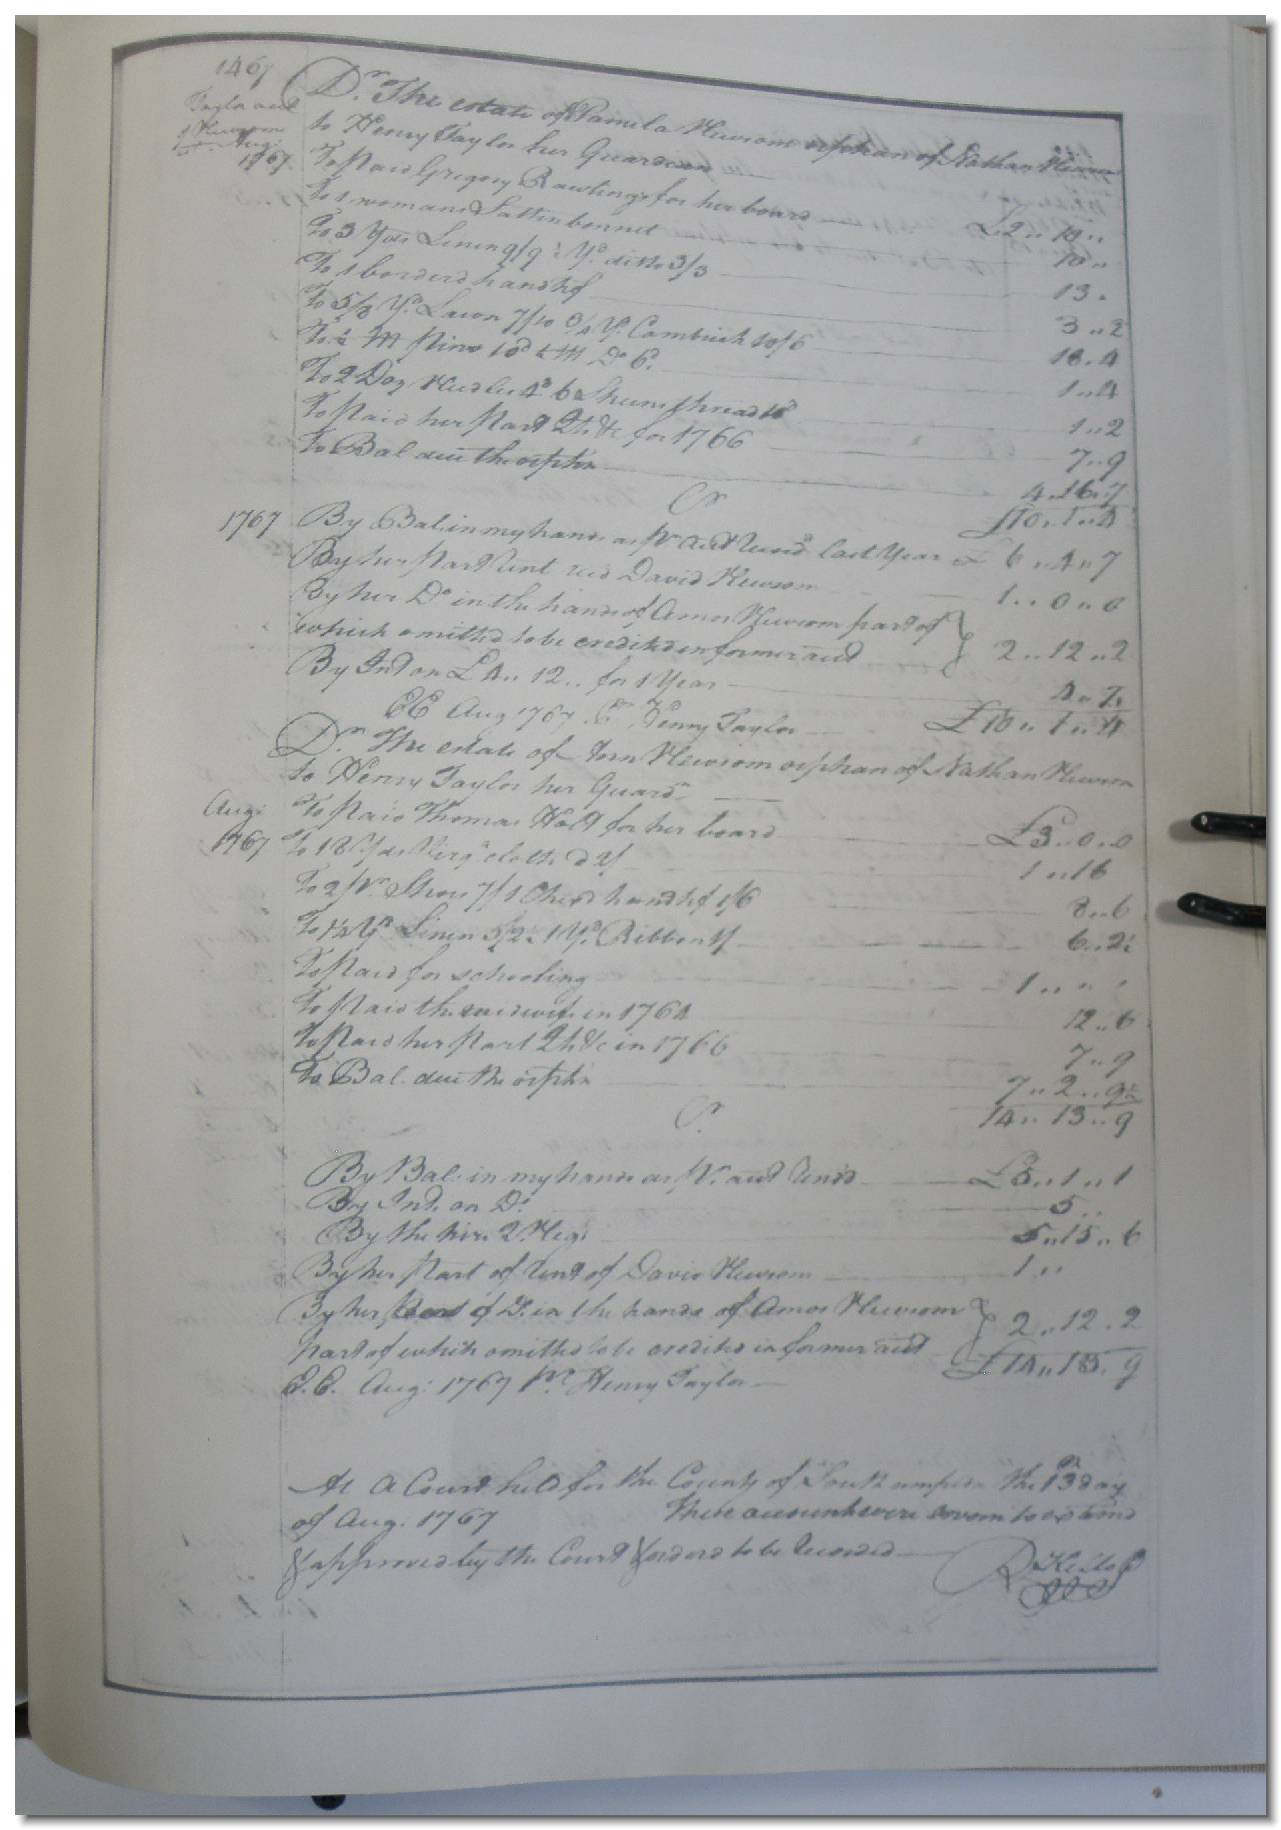 1467
Taylor and
Hewsom
Aug:
1767
Dr. The estate of Pamila Hewsom orphan of Nathan Hewsom
to Henry Taylor her Guardean
To Paid Gregory Rawlings for her board £2 .. 10 ..
To 1 womans Sattin bonnet 10 ..
To 3 Yds Linen 9/9 Yd ditto 3/3 13 .
To 1 borderd handkf 3 .. 2
To 5/8 Yd Lawn 7/10 3/4 Yd Cambrick 10/6 18 . 4
To ½ M Pins 10d ½ M Do 6d 1 .. 4
To 2 Doz Needles 4d thread 1 .. 2
To Paid her Part Qt. &c for 1766 7 .. 9
To Bal due the orphn 4 .. 16 .. 7
Cr £10 .. 1 .. 4
1767 By Bal. in my hands as Pr Acct last Year £ 6 .. 4 .. 7
By her Part Rent recd David Hewsom 1 .. 0 .. 0
By her Do in the hands of Amos Hewsom part of
which omitted to be credited in former acct 2 .. 12 .. 2
By Int on £4 .. 12 .. for 1 Year 4 .. 7
EE Aug 1767 Henry Taylor £10 .. 1 .. 4
Dr. The estate of Hewsom orphan of Nathan Hewsom
to Henry Taylor her Guardn
Aug: To Paid Thomas Holt for her board £3 .. 0 .. 0
1767 To 18 Yds Virga cloth @ 2/ 1 .. 16
To 2 Pr Shoes 7/ 1 Check handkf 1/6 8 .. 6
To 1¼ Yd Linen 5/2 1 Yd Ribbon 1/ 6 .. 2
To Paid for schooling 1 .. "
To Paid the midwife in 1764 12 .. 6
To Paid her Part Qt. &c in 1766 7 .. 9
To Bal. due the orphn 7 .. 2 .. 9
Cr. 14 .. 13 .. 9
By Bal. in my hands as Pr. acct £5 .. 1 .. 1
By Int. on Do 5 ..
By the hire 2 Neg: 5 .. 15 .. 6
By her Part of Rent of David Hewsom 1 ..
By her Part of Do in the hands of Amos Hewsom
part of which omitted to be credited in former acct 2 .. 12 . 2
E.E. Aug: 1767 Pr Henry Taylor £14 .. 13 . 9
At a Court held for the County of Southampton the 13 day
of Aug. 1767 These accounts were sworn to
& approved by the Court & orderd to be Recorded
R Kello